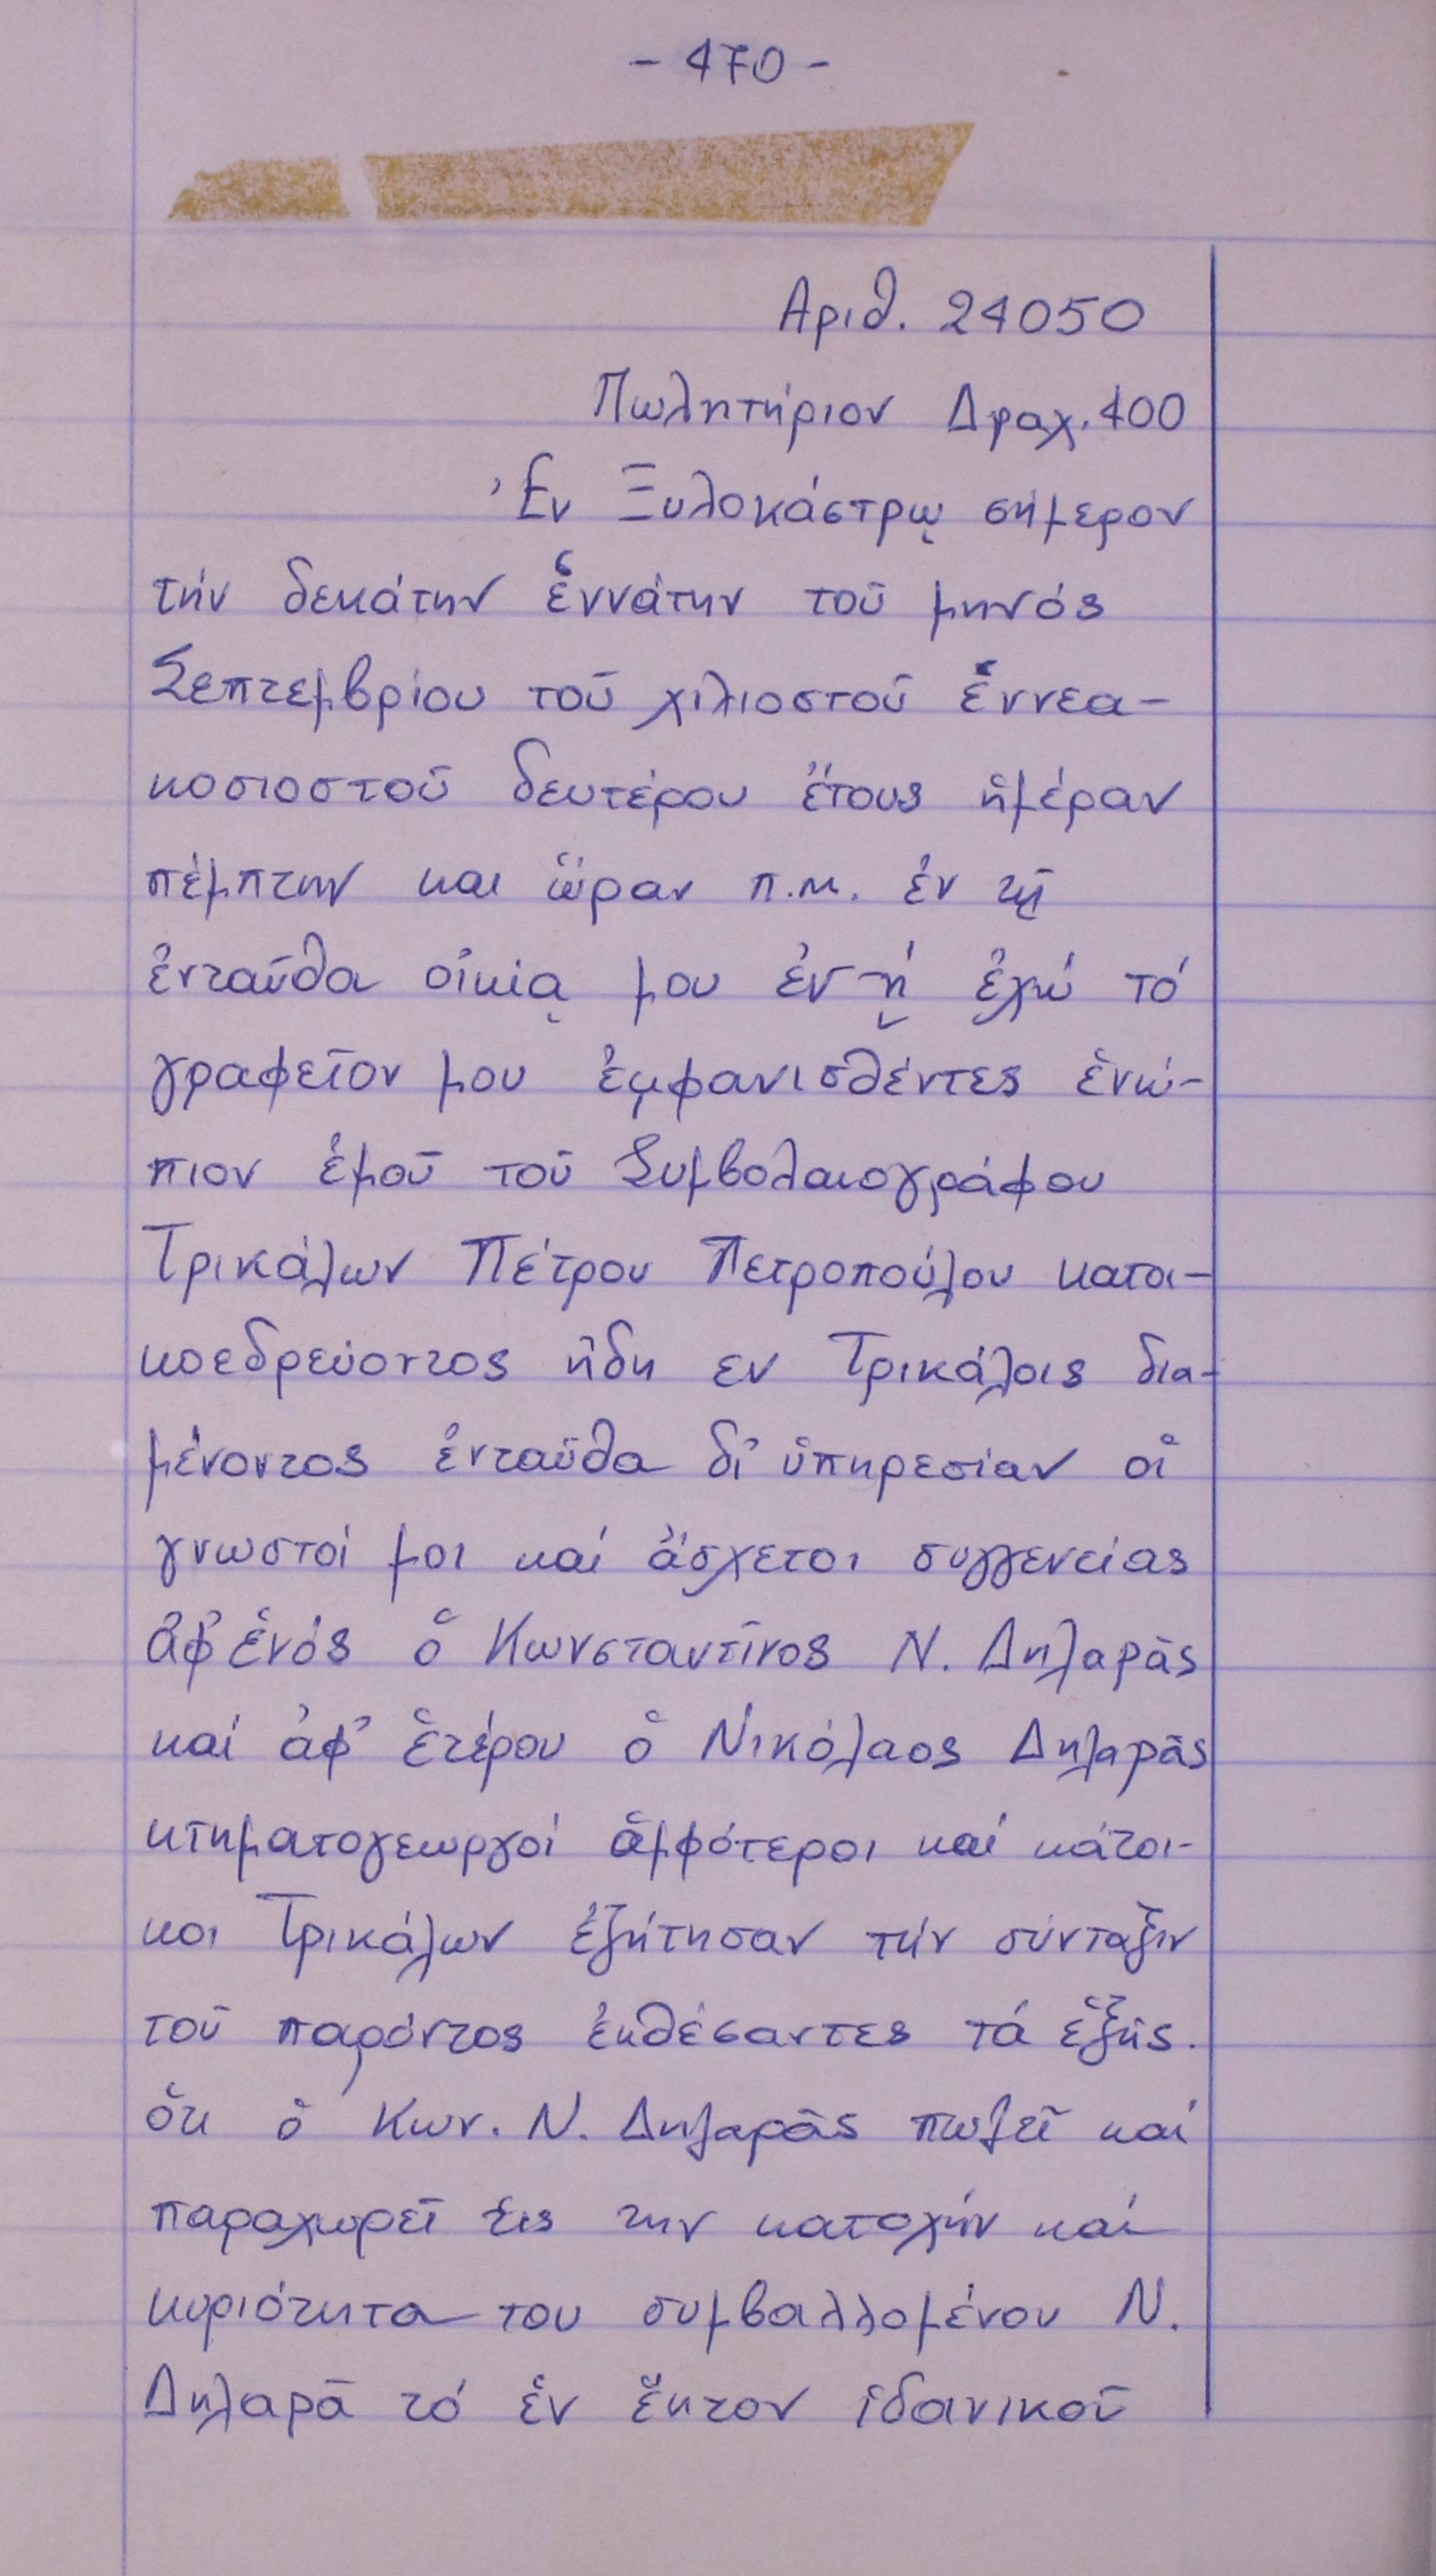 - 470 -
Αριθ. 24050
Πωλητήριον Δραχ. 400
Ἐν Ξυλοκάστρῳ σήμερον
τήν δεκάτην ἐννάτην τοῦ μηνός
Σεπτεμβρίου τοῦ χιλιοστοῦ ἐννεα-
κοσιοστοῦ δευτέρου ἔτους ἡμέραν
πέμπτην και ὥραν π.μ. ἐν τῇ
ἐνταῦθα οἰκίᾳ μου ἐν ᾗ ἔχω τό
γραφεῖον μου ἐμφανισθέντες ἐνώ-
πιον ἐμοῦ τοῦ Συμβολαιογράφου
Τρικάλων Πέτρου Πετροπούλου κατοι-
κοεδρεύοντος ἤδη εν Τρικάλοις δια-
μένοντος ἐνταῦθα δι' ὑπηρεσίαν οἱ
γνωστοί μοι καί ἄσχετοι συγγενείας
ἀφ' ἑνός ὁ Κωνσταντῖνος Ν. Δηλαρᾶς
καί ἀφ' ἑτέρου ὁ Νικόλαος Δηλαρᾶς
κτηματογεωργοί ἀμφότεροι καί κάτοι-
κοι Τρικάλων ἐζήτησαν τήν σύνταξιν
τοῦ παρόντος ἐκθέσαντες τά ἑξῆς.
ὅτι ὁ Κων. Ν. Δηλαρᾶς πωλεῖ καί
παραχωρεῖ εἰς την κατοχήν καί
κυριότητα του συμβαλλομένου Ν.
Δηλαρᾶ τό ἑν ἕκτον ἰδανικοῦ